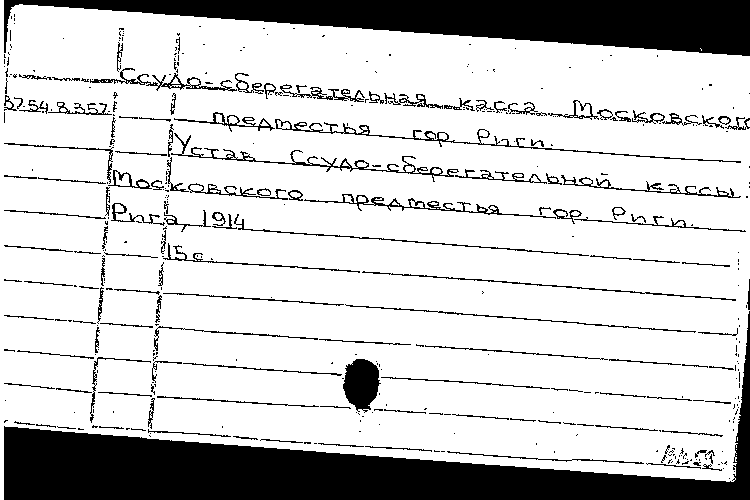 Ссудо-сберегательная касса Московского
37.54.8.357
предместья гор. Риги.
Устав Ссудо-сберегательной кассы
Московского предместья гор. Риги.
Рига, 1914
15 с.